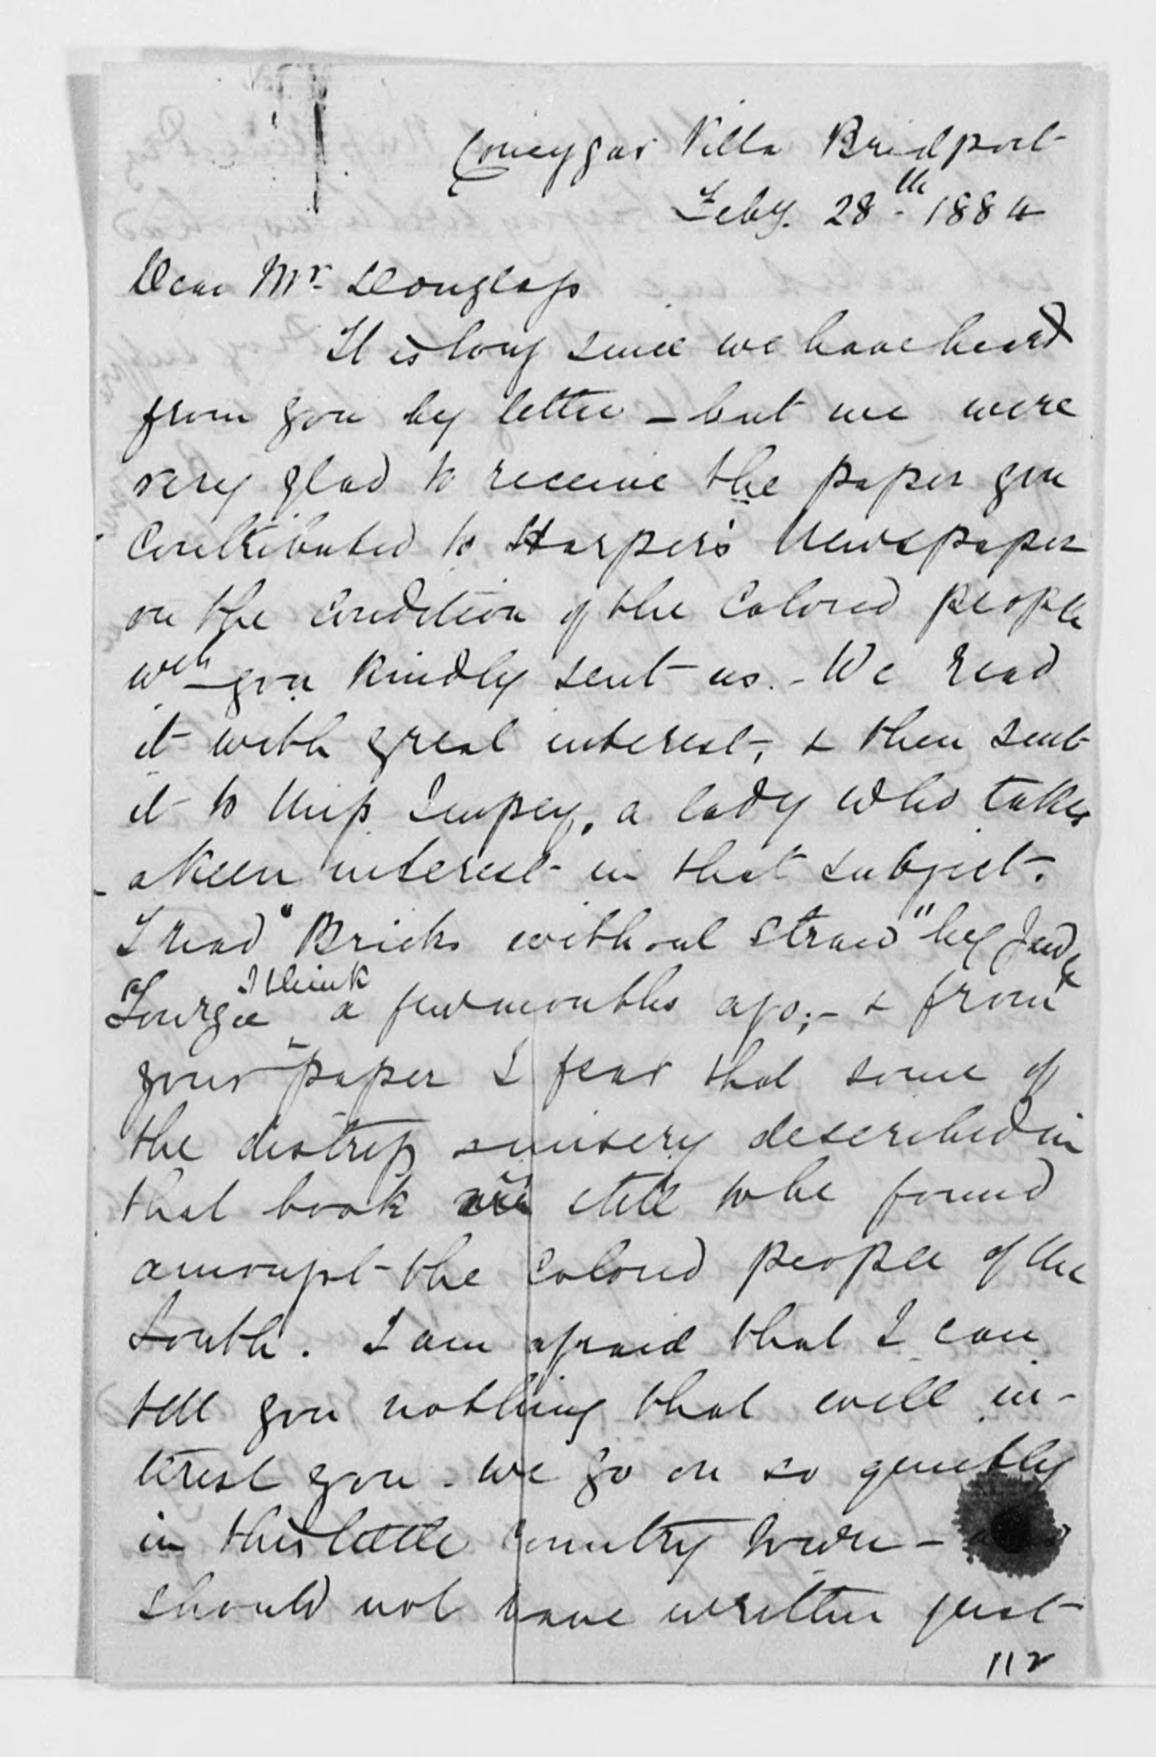 Coneygar Villa Bridport
Feby. 28th 1884
Dear Mr Douglass
It is long since we have heard
from you by letter - but we were
very glad to receive the paper you
Contributed to Harper's Newspaper
on the condition of the Colored people
wch you kindly sent us. - We read
it with great interest, & then sent
it to Miss Impey, a lady who takes
a keen interest in that subject.
I read "Bricks without Straw" by Judge
Tourgee I think a few months ago; - & from
your paper I fear that some of
the distress & misery described in
that book are still to be found
amongst the Colored people of the
South. I am afraid that I can
tell you nothing that will in-
terest you - we go on so quietly
in this little Country town -
should not have written just
112